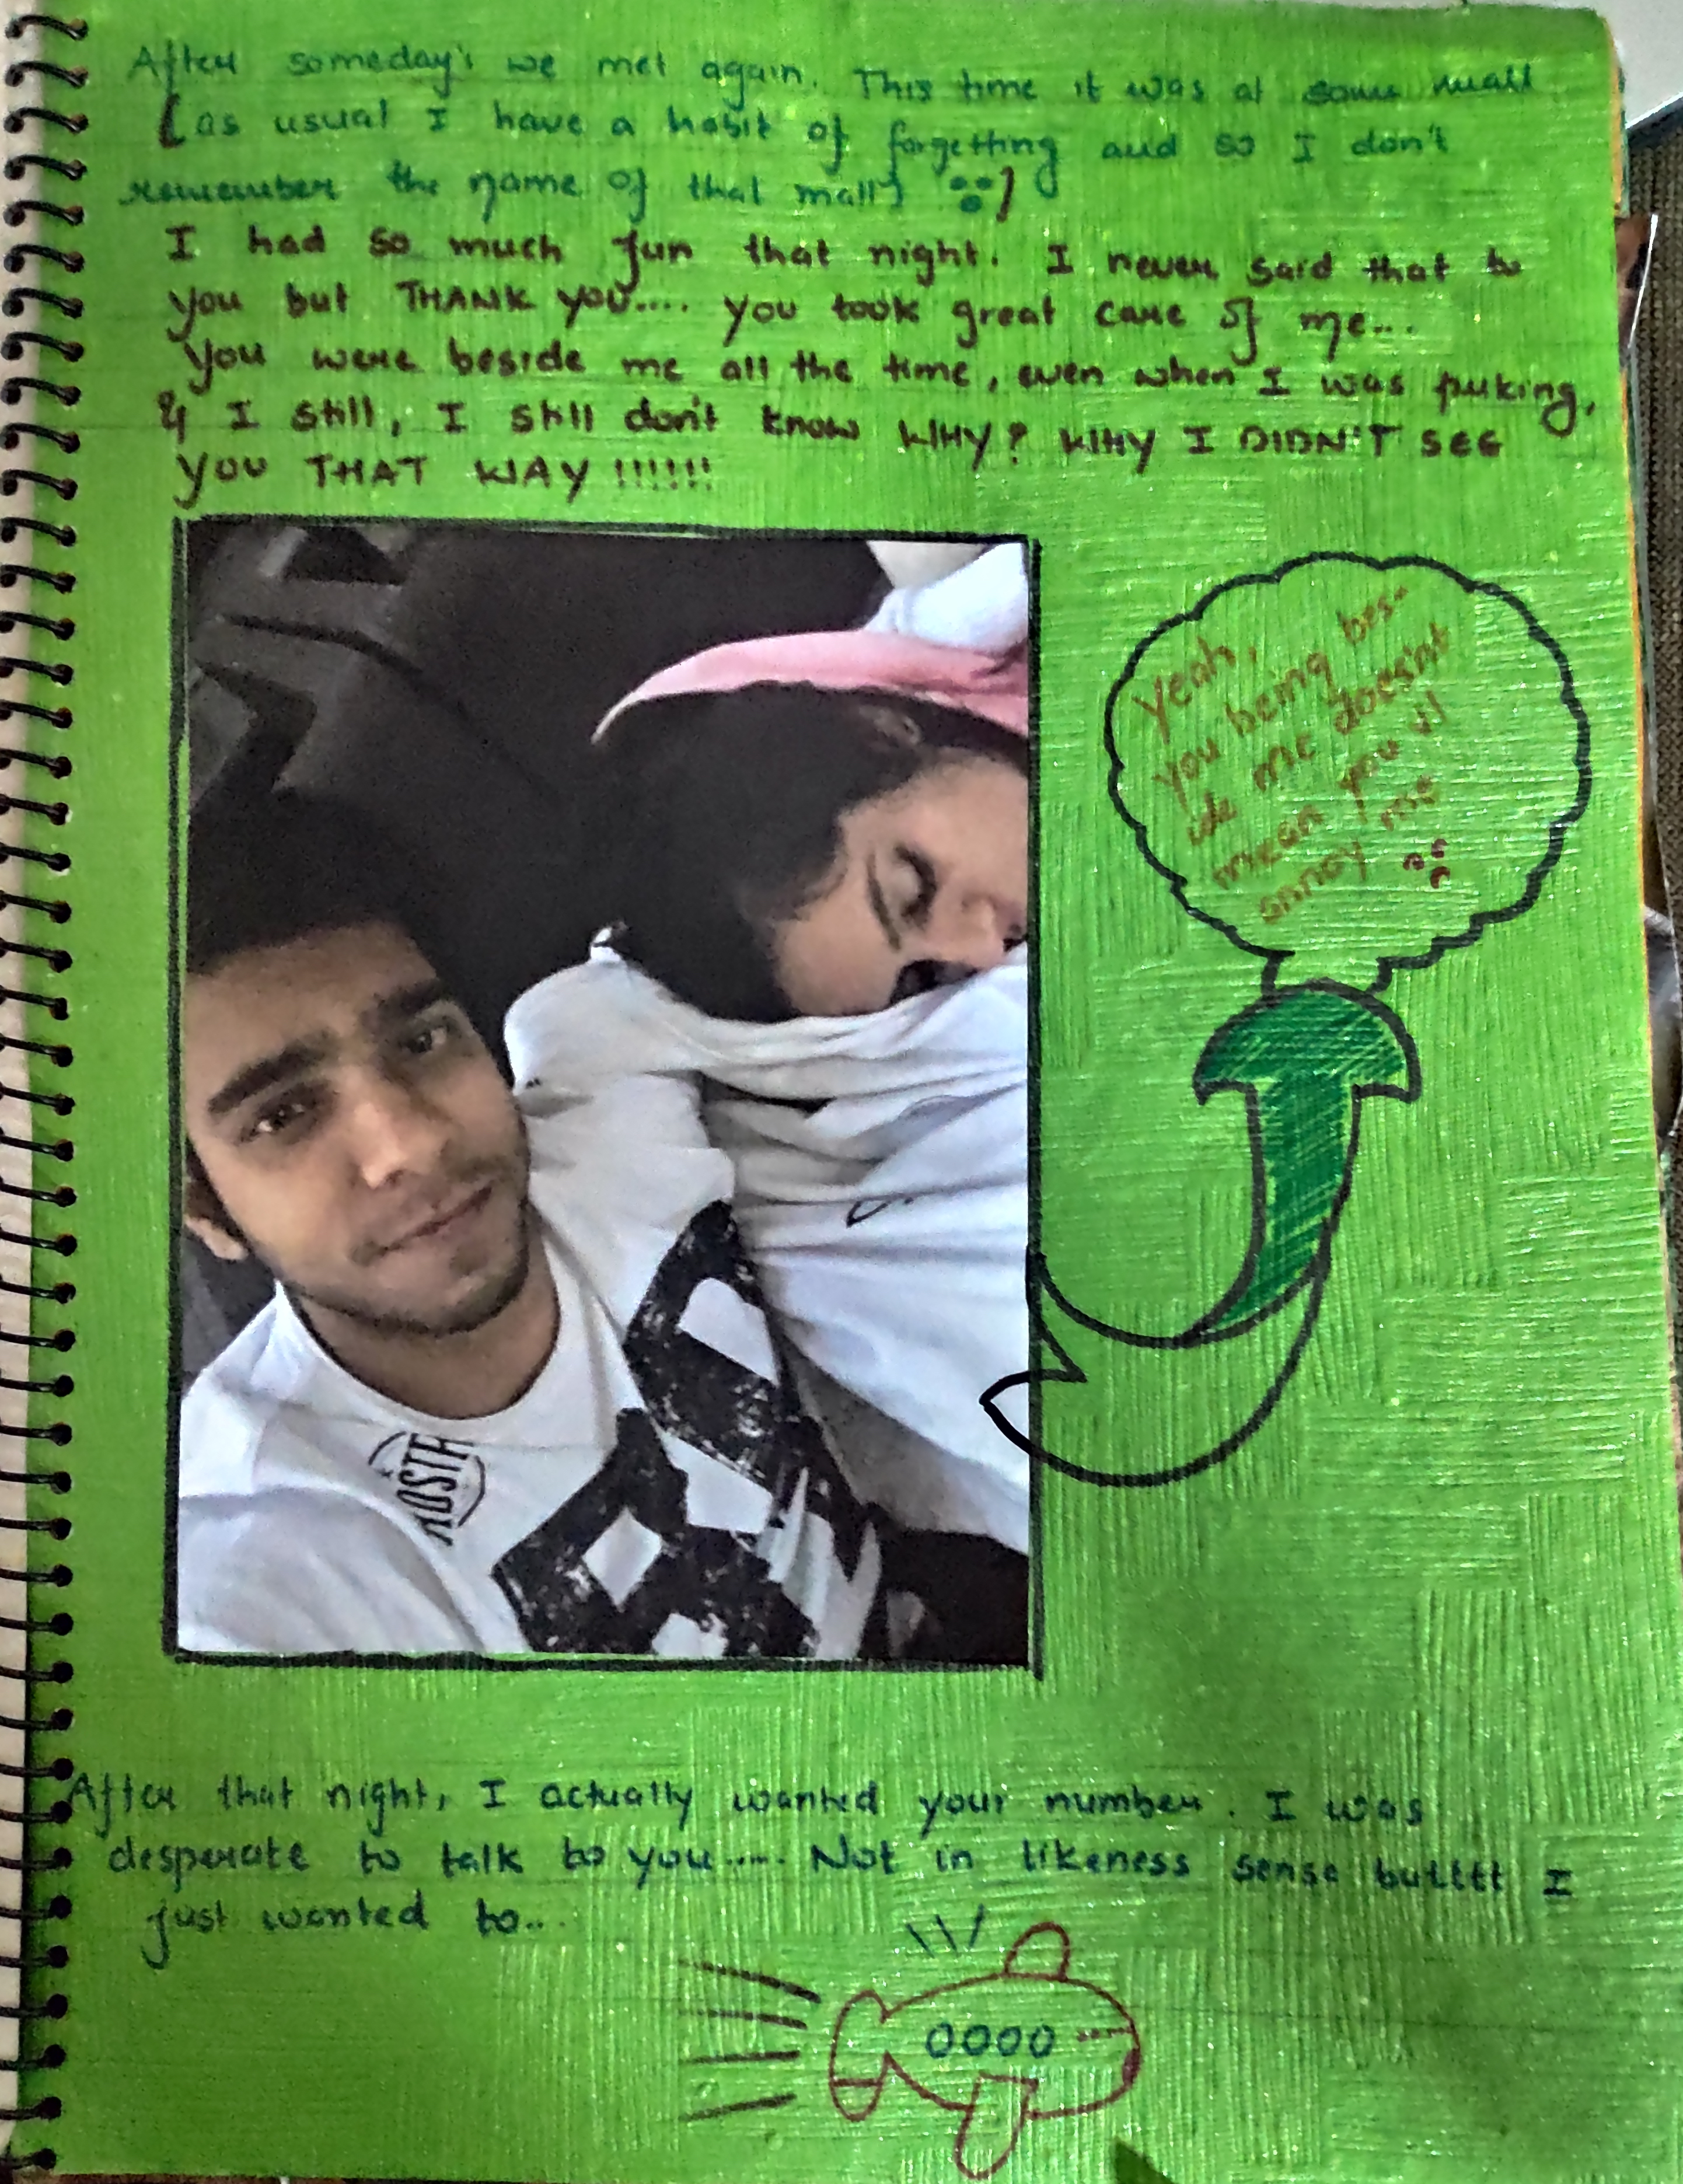 After someday's we met again. This time it was at some mall
[as usual I have a habit of forgetting and so I don't
remember the name of that mall]
I had so much fun that night. I never said that to
you but THANK YOU.... you took great care of me...
you were beside me all the time, even when I was puking,
& I still, I still don't know WHY? WHY I DIDN'T SEE
YOU THAT WAY !!!!!!
Yeah,
you being bes-
ide me doesn't
mean you'll
annoy me
After that night, I actually wanted your number. I was
desperate to talk to you..... Not in likeness sense butttt I
just wanted to...